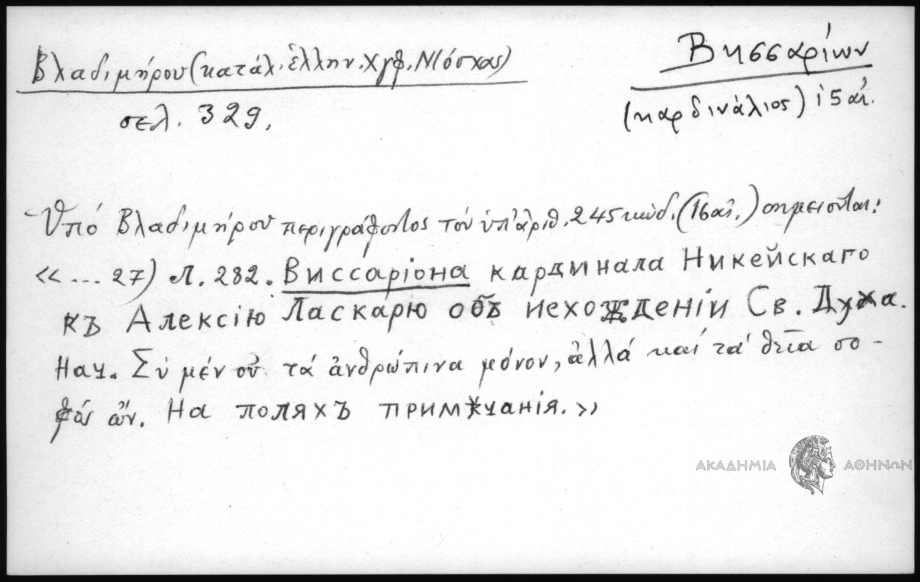 Βλαδιμήρου (κατάλ. ἑλλην. Χγφ. Μόσχας)
σελ. 329.
Βησσαρίων
(καρδινάλιος) 15 αἰ.
Ὑπό Βλαδιμήρου περιγράφοντος τόν ὑπ' ἀριθ. 245 κώδ. (16 αἰ.) σημειοῦται:
«... 27) Л. 282. Виссаріона кардинала Никейскаго
къ Алексію Ласкарю объ исхожденіи Св. Духа.
Нач. Σύ μέν οὐ τά ἀνθρώπινα μόνον, ἀλλά καί τά θεῖα σο-
φός ὤν. На поляхъ примѣчанія.»
ΑΚΑΔΗΜΙΑ ΑΘΗΝΩΝ